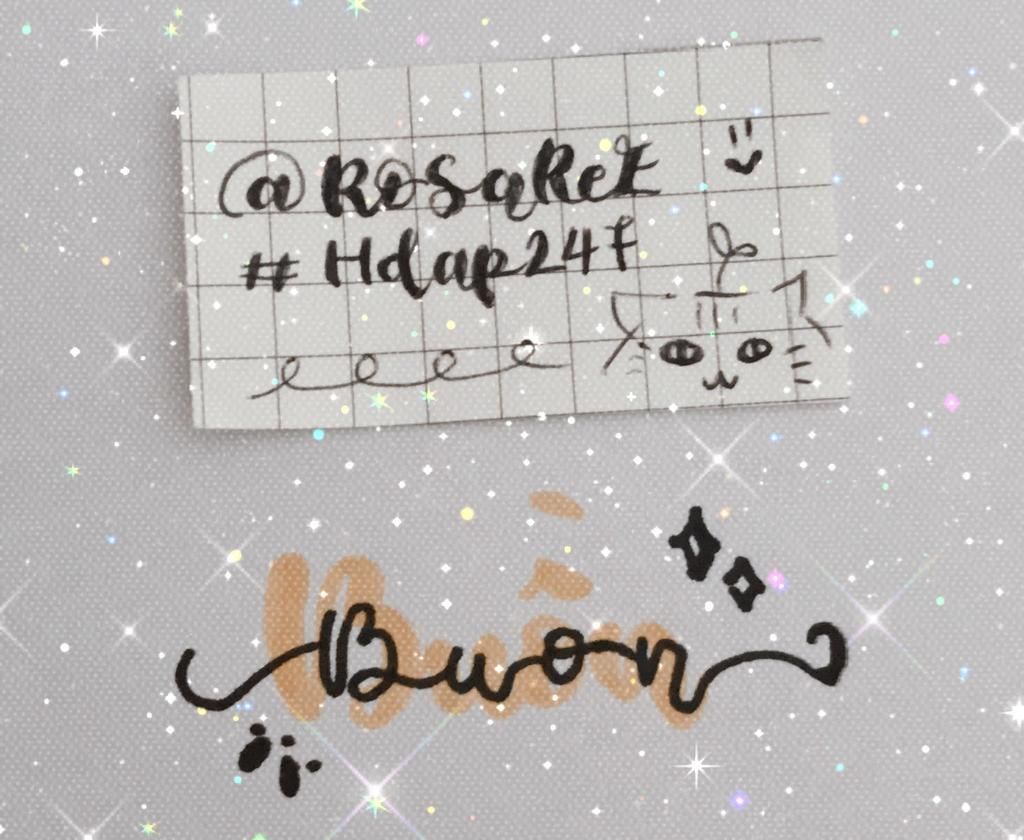 @RoSaRet
#Hdap247
Buồn